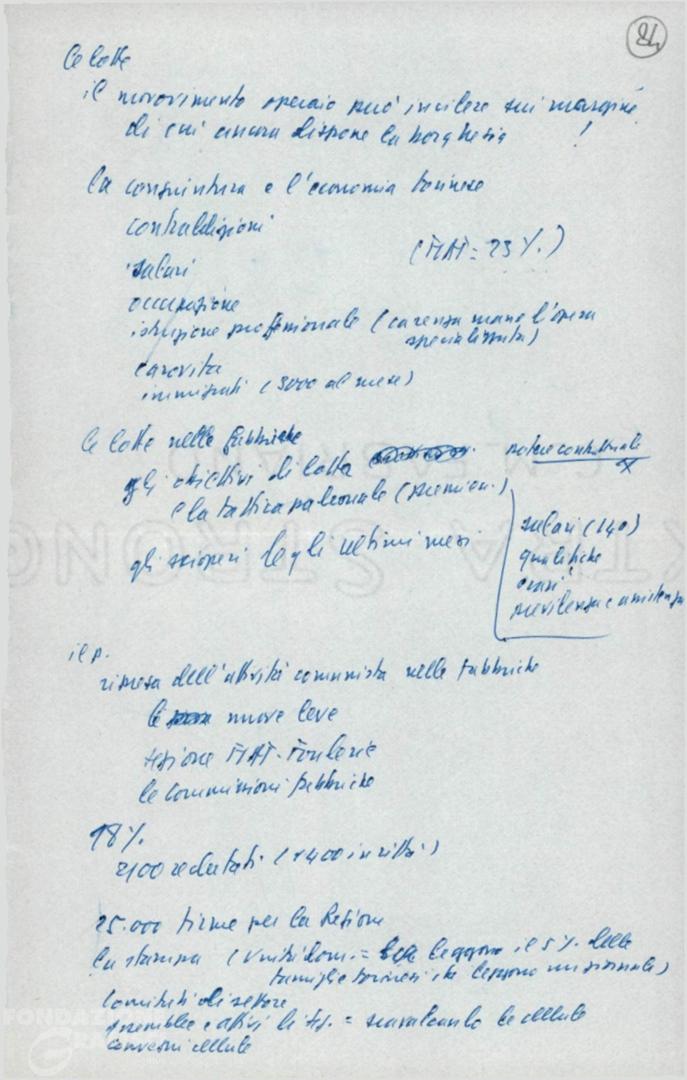 84
le lotte
il movovimento operaio può incidere sui margini
di cui ancora dispone la borghesia !
la congiuntura e l'economia torinese
contraddizioni
salari (FIAT = 23%.)
occupazione
istruzione professionale (carenza mano l'opera
specializzata)
carovita
immigrati (3000 al mese)
le lotte nelle fabbriche
gli obiettivi di lotta potere contrattuale
e la tattica padronale
gli scioperi degli ultimi mesi
salari (140)
qualifiche
orari
previdenza e assistenza
il p.
ripresa dell'attività comunista nelle fabbriche
le nuove leve
sezione FIAT-Fonderie
le commissioni fabbriche
18%
2100 reclutati (+400 iscritti)
25.000 firme per la Regione
la stampa (Unità dom. = leggono il 5%. delle
famiglie torinesi che leggono un giornale)
Comitati di settore
assemblee e attivi di sez. = scavalcando le cellule
convegni cellule
FONDAZIONE